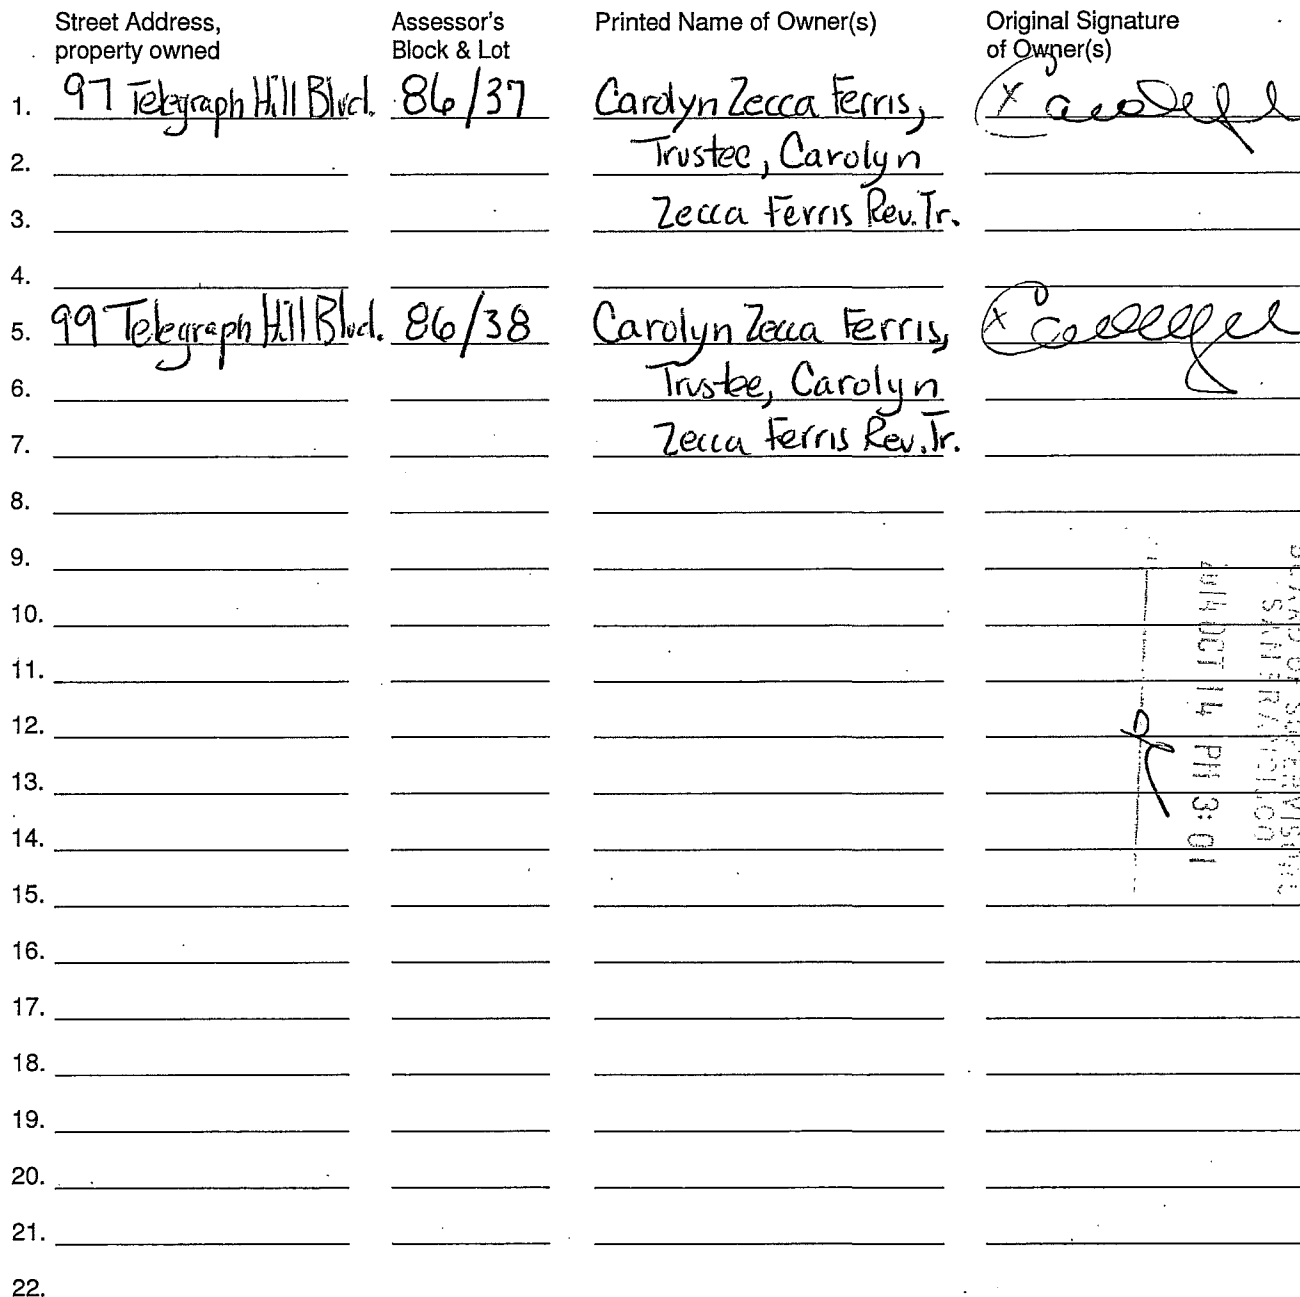 Street Address, Assessor's Printed Name of Owner(s) Original Signature
property owned Block & Lot of Owner(s)
1. 97 Telegraph Hill Blvd. 86/37 Carolyn Zecca Ferris, X
2. Trustee, Carolyn
3. Zecca Ferris Rev. Tr.
4.
5. 99 Telegraph Hill Blvd. 86/38 Carolyn Zecca Ferris, X
6. Trustee, Carolyn
7. Zecca Ferris Rev. Tr.
8.
9.
10.
11.
12.
13.
14.
15.
16.
17.
18.
19.
20.
21.
22.
BOARD OF SUPERVISORS
SAN FRANCISCO
2014 OCT 14 PM 3:01